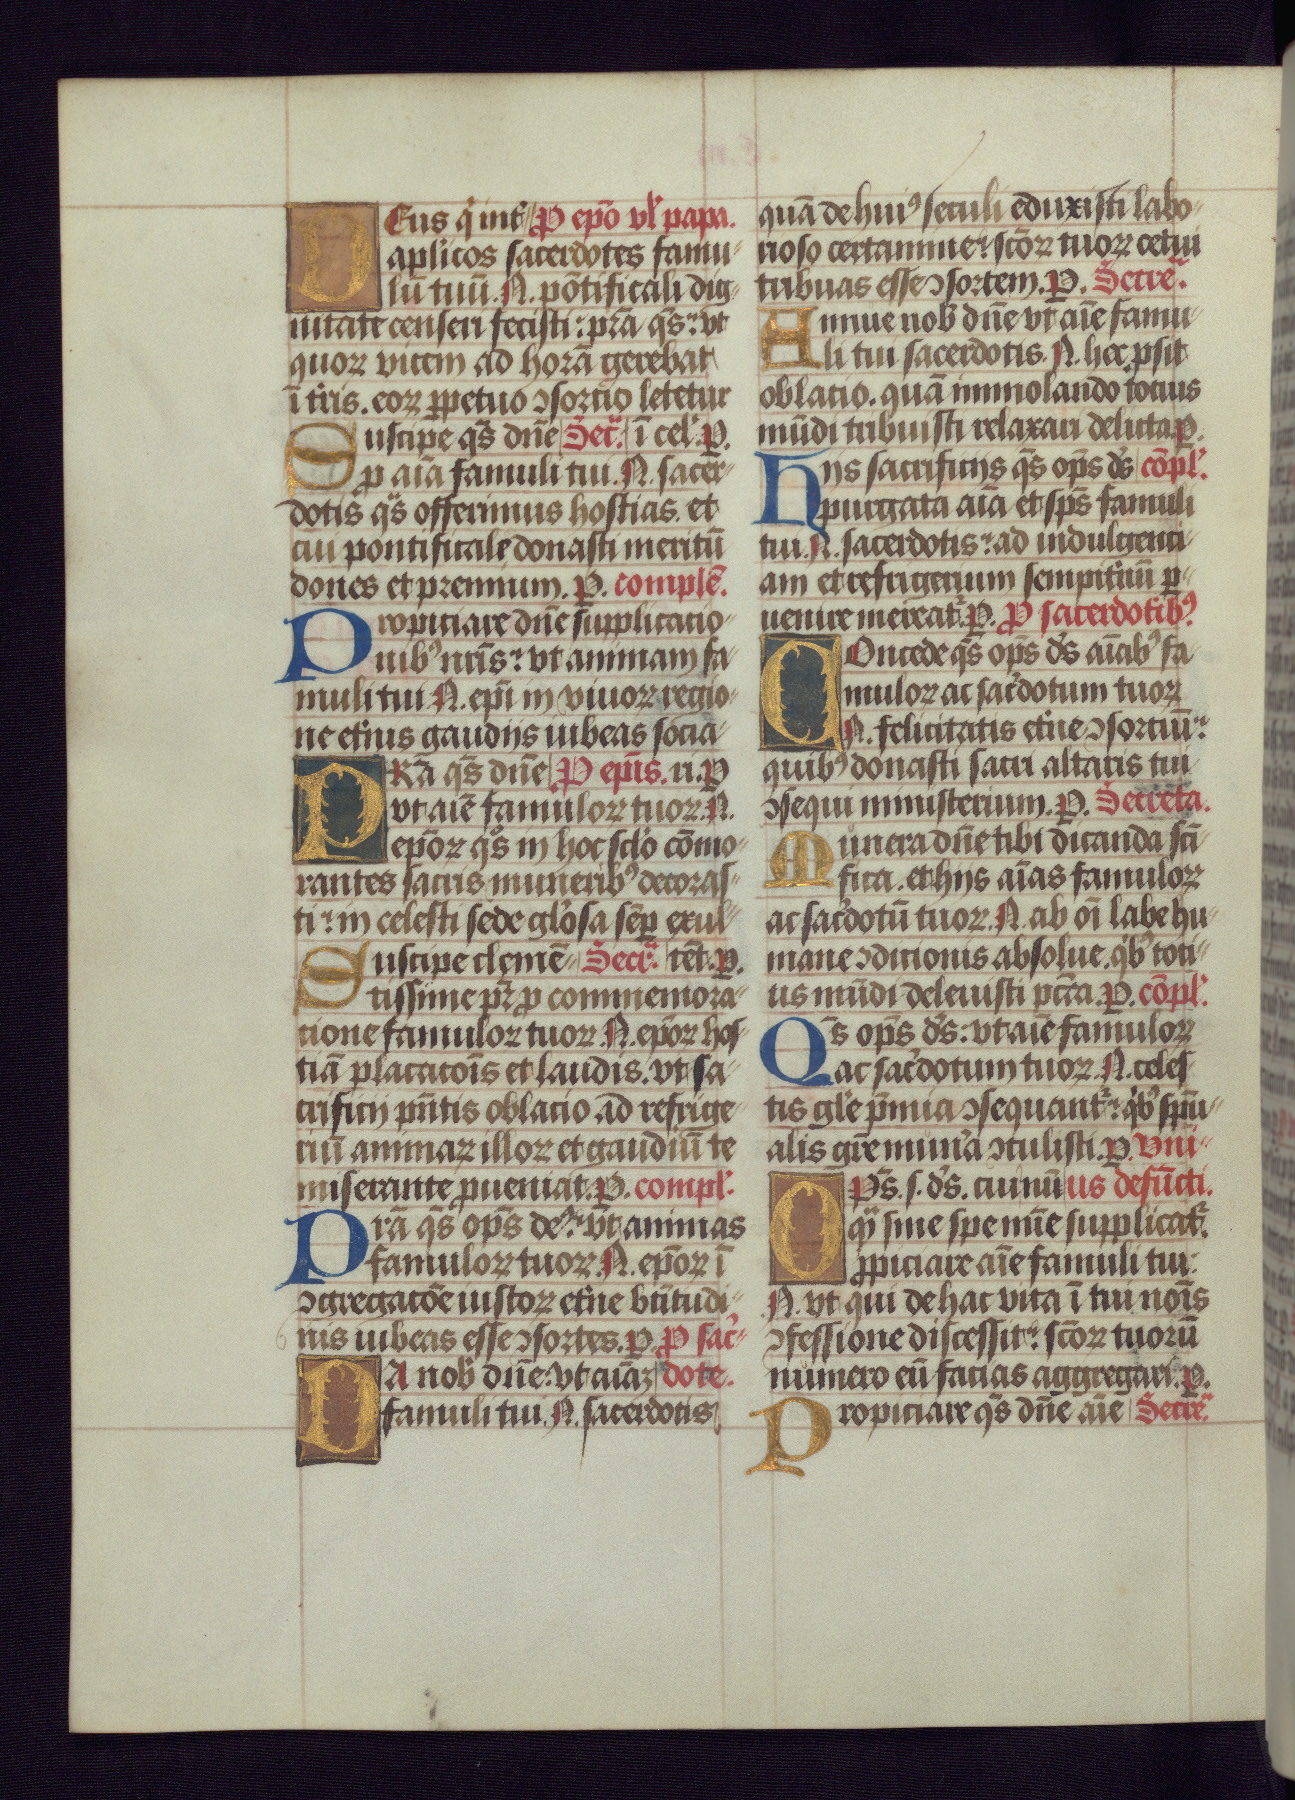 DEus q̇ int̾ P epō vl̾ papa.
aplicos sacerdotes famu-
lū tuū. N. pōtificali dig-
nitate censeri fecisti: p̄ra q̄s: vt
quoꝝ vicem ad horā gerebat
ī tr̄is. eoꝝ ꝑpetuo ↄsortio letetur
Suscipe q̄s dn̄e Sec̄. ī cel̾. P.
ꝓ aīa famuli tui. N. sacer-
dotis q̄s offerimus hostias. et
cui pontificale donasti meritū
dones et premium. P. complē.
Propiciare dn̄e supplicacio-
nibꝰ nr̄is: vt animam fa-
muli tui N. epī in viuoꝝ regio-
ne et̄nis gaudijs iubeas socia-
PRā q̄s dn̄e P ep̄is. ri. P
vt aīe famuloꝝ tuoꝝ. N.
epōꝝ q̊s in hoc sclo cōmo-
rantes sacris muneribꝰ decoras-
ti: in celesti sede glosa sēꝑ exul-
Suscipe clemē- Secr̄. tēt. P.
tissime pr̄ ꝓ commemora-
tione famuloꝝ tuoꝝ. N. epoꝝ hos-
tiā placatoīs et laudis. vt sa-
crificij pn̄tis oblacio ad refrige-
riū animaꝝ illoꝝ et gaudiū te
miserante ꝓueniat. P. compl̾.
Prā q̄s op̄s de: vt animas
famuloꝝ tuoꝝ. N. epoꝝ ī
ↄgregacōe iustoꝝ et̄ne bt̄itudi-
nis iubeas esse ↄsortes. P. P sac̄-
DA nob̾ dn̄e: vt aīaꝫ dote.
famuli tui. N. sacerdotis
quā de huiꝰ seculi eduxisti labo-
rioso certamine: sc̄oꝝ tuoꝝ cetui
tribuas esse ↄsortem. P. Secre̾.
Annue nob̾ dn̄e vt aīe famu-
li tui sacerdotis. N. hec ꝓsit
oblacio. quā immolando tocius
mūdi tribuisti relaxari delicta. P.
Hijs sacrificijs q̄s op̄s d̄s cōpl̾.
purgata aīa et sp̄s famuli
tui. N. sacerdotis: ad indulgenci-
am et refrigerium sempit̄nū ꝑ-
uenire mereat̾. P. P sacerdotibꝰ
COncede q̄s op̄s d̄s aīabꝰ fa-
muloꝝ ac sac̄dotum tuoꝝ
N. felicitatis et̄ne ↄsortiū:
quibꝰ donasti sacri altaris tui
ↄsequi ministerium. P. Secreta.
Munera dn̄e tibi dicanda sc̄i-
fica. et hijs aīas famuloꝝ
ac sac̄dotū tuoꝝ. N. ab oī labe hu-
mane ↄdicionis absolue. q̇bꝰ toti-
us mūdi deleuisti pc̄ta. P. cōpl̾.
Qs̄ op̄s d̄s: vt aīe famuloꝝ
ac sac̄dotum tuoꝝ. N. celes-
tis gl̄e p̄mia ↄsequant̾: q̇bꝰ sp̄ū-
alis gr̄e mun̄a ↄtulisti. P. Vni-
OPs̄. s. d̄s. cui nū us defūcti.
q̄ sine spe mīe supplicat̾.
ꝓpiciare aīe famuli tui.
N. vt qui de hac vita ī tui noīs
ↄfessione discessit: sc̄oꝝ tuorū
numero eū facias aggregari. P.
Propiciare q̄s dn̄e aīe Secre̾.